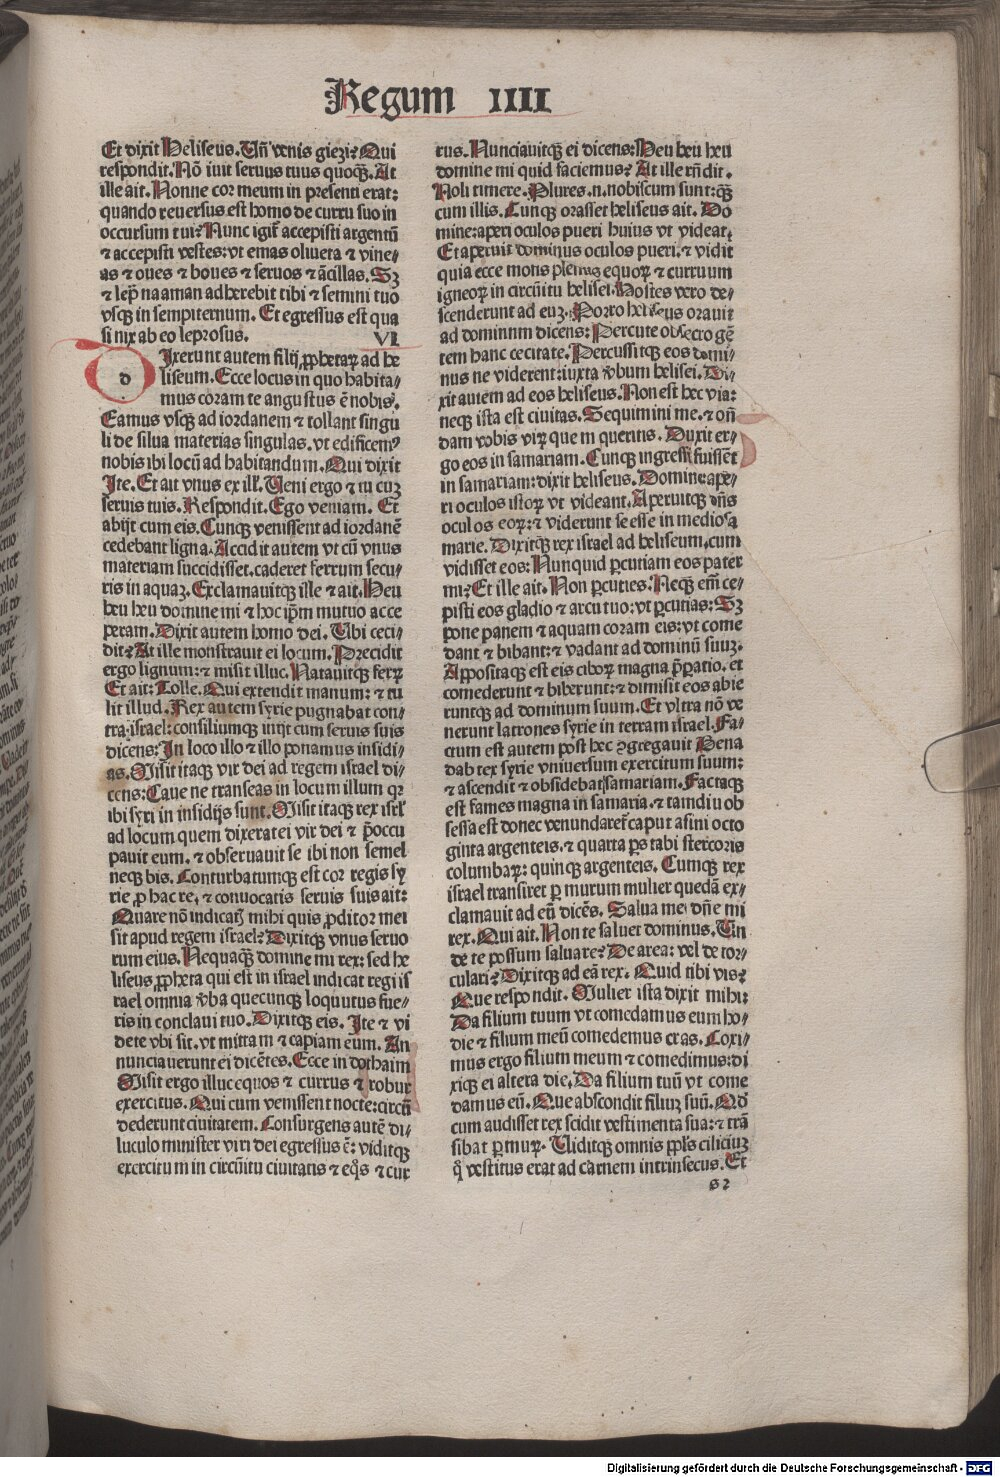 Regum IIII
Et dixit Heliseus. Vñ venis giezi? Qui
respondit. Nō iuit seruus tuus quoqꝫ. At
ille ait. Nonne cor meum in presenti erat:
quando reuersus est homo de curru suo in
occursum tui? Nunc igit᷑ accepisti argentū
⁊ accepisti vestes: vt emas oliueta ⁊ vine⸗
as ⁊ oues ⁊ boues ⁊ seruos ⁊ ācillas. Sꝫ
⁊ lep̄ naaman adherebit tibi ⁊ semini tuo
vsqꝫ in sempiternum. Et egressus est qua
si nix ab eo leprosus. VI
d Ixerunt autem filij ꝓphetaꝝ ad he
liseum. Ecce locus in quo habita⸗
mus coram te angustus ē nobis.
Eamus vsqꝫ ad iordanem ⁊ tollant singu
li de silua materias singulas. vt edificemꝰ
nobis ibi locū ad habitandum. Qui dixit
Ite. Et ait vnus ex ill᷑. Veni ergo ⁊ tu cuꝫ
seruis tuis. Respondit. Ego veniam. Et
abijt cum eis. Cunqꝫ venissent ad iordanē
cedebant ligna. Accidit autem vt cū vnus
materiam succidisset. caderet ferrum secu⸗
ris in aquaꝫ. Exclamauitqꝫ ille ⁊ ait. Heu
heu heu domine mi ⁊ hoc ip̄m mutuo acce
peram. Dixit autem homo dei. Vbi ceci⸗
dit? At ille monstrauit ei locum. Precidit
ergo lignum: ⁊ misit illuc. Natauitqꝫ ferꝝ
Et ait: Tolle. Qui extendit manum: ⁊ tu
lit illud. Rex autem syrie pugnabat con⸗
tra israel: consiliumqꝫ inijt cum seruis suis
dicens: In loco illo ⁊ illo ponamus insidi⸗
as. Misit itaqꝫ vir dei ad regem israel di⸗
cens: Caue ne transeas in locum illum qꝛ
ibi syri in insidijs sunt. Misit itaqꝫ rex isrl̓
ad locum quem dixerat ei vir dei ⁊ p̄occu
pauit eum. ⁊ obseruauit se ibi non semel
neqꝫ bis. Conturbatumqꝫ est cor regis sy
rie ꝓ hac re. ⁊ conuocatis seruis suis ait:
Quare nō indicat᷑ mihi quis ꝓditor mei
sit apud regem israel? Dixitqꝫ vnus seruo
rum eius. Nequaqꝫ̄ domine mi rex: sed he
liseus ꝓpheta qui est in israel indicat regi is
rael omnia v̄ba quecunqꝫ loquutus fue⸗
ris in conclaui tuo. Dixitqꝫ eis. Ite ⁊ vi
dete vbi sit. vt mittam ⁊ capiam eum. An
nunciauerunt ei dicētes. Ecce in dothaim
Misit ergo illuc equos ⁊ currus ⁊ robur
exercitus. Qui cum venissent nocte: circū
dederunt ciuitatem. Consurgens autē di⸗
luculo minister viri dei egressus ē: viditqꝫ
exercitum in circūitu ciuitatis ⁊ eq̄s ⁊ cur
rus. Nunciauitqꝫ ei dicens: Heu heu heu
domine mi quid faciemus? At ille rn̄dit.
Noli timere. Plures .n. nobiscum sunt: qꝫ̄
cum illis. Cunqꝫ orasset heliseus ait. Do
mine: aperi oculos pueri huius vt videat.
Et aperuit dominus oculos pueri. ⁊ vidit
quia ecce mons plenus equoꝝ ⁊ curruum
igneoꝝ in circūitu helisei. Hostes vero de⸗
scenderunt ad euꝫ. Porro heliseus orauit
ad dominum dicens: Percute obsecro gē
tem hanc cecitate. Percussitqꝫ eos domi⸗
nus ne viderent: iuxta v̄bum helisei. Di⸗
xit autem ad eos heliseus. Non est hec via:
neqꝫ ista est ciuitas. Sequimini me. ⁊ oñ
dam vobis viꝝ quem queritis. Duxit er⸗
go eos in samariam. Cunqꝫ ingressi fuissēt
in samariam: dixit heliseus. Domine: ape⸗
ri oculos istoꝝ vt videant. Aperuitqꝫ dn̄s
oculos eoꝝ: ⁊ viderunt se esse in medio sa
marie. Dixitqꝫ rex israel ad heliseum. cum
vidisset eos: Nunquid ꝑcutiam eos pater
mi? Et ille ait. Non ꝑcuties. Neqꝫ em̄ ce⸗
pisti eos gladio ⁊ arcu tuo: vt ꝑcutias: Sꝫ
pone panem ⁊ aquam coram eis: vt come
dant ⁊ bibant: ⁊ vadant ad dominū suuꝫ.
Appositaqꝫ est eis ciboꝝ magna p̄ꝑatio. et
comederunt ⁊ biberunt: ⁊ dimisit eos abie
runtqꝫ ad dominum suum. Et vltra nō ve
nerunt latrones syrie in terram israel. Fa⸗
ctum est autem post hec ꝯgregauit Bena
dab rex syrie vniuersum exercitum suum:
⁊ ascendit ⁊ obsidebat samariam. Factaqꝫ
est fames magna in samaria. ⁊ tamdiu ob
sessa est donec venundaret᷑ caput asini octo
ginta argenteis. ⁊ quarta ꝑs cabi stercoris
columbaꝝ: quinqꝫ argenteis. Cumqꝫ rex
israel transiret ꝑ murum mulier quedā ex⸗
clamauit ad eū dicēs. Salua me dn̄e mi
rex. Qui ait. Non te saluet dominus. Vn
de te possum saluare? De area: vel de tor⸗
culari? Dixitqꝫ ad eā rex. Quid tibi vis?
Que respondit. Mulier ista dixit mihi:
Da filium tuum vt comedamus eum ho⸗
die ⁊ filium meū comedemus cras. Coxi⸗
mus ergo filium meum ⁊ comedimus: di
xiqꝫ ei altera die. Da filium tuū vt come
damus eū. Que abscondit filiuꝫ suū. Qd̄
cum audisset rex scidit vestimenta sua: ⁊ trā
sibat ꝑ muꝝ. Viditqꝫ omnis ppl̓s ciliciuꝫ
q̊ vestitus erat ad carnem intrinsecus. Et
s 2
Digitalisierung gefördert durch die Deutsche Forschungsgemeinschaft - DFG